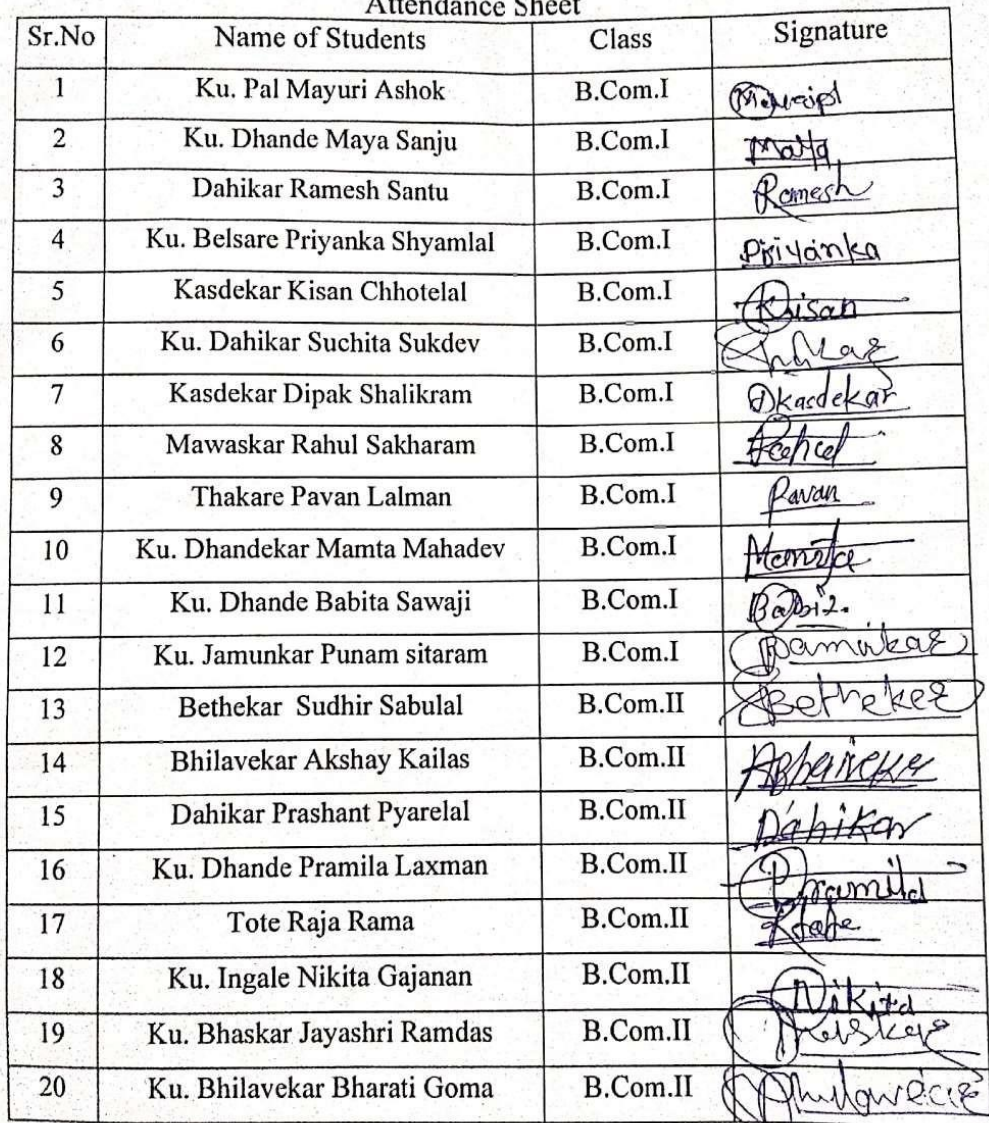 Attendance Sheet
Sr.No Name of Students Class Signature
1 Ku. Pal Mayuri Ashok B.Com.I
2 Ku. Dhande Maya Sanju B.Com.I Maya
3 Dahikar Ramesh Santu B.Com.I Ramesh
4 Ku. Belsare Priyanka Shyamlal B.Com.I Priyanka
5 Kasdekar Kisan Chhotelal B.Com.I Kisan
6 Ku. Dahikar Suchita Sukdev B.Com.I
7 Kasdekar Dipak Shalikram B.Com.I Dkasdekar
8 Mawaskar Rahul Sakharam B.Com.I
9 Thakare Pavan Lalman B.Com.I Pavan
10 Ku. Dhandekar Mamta Mahadev B.Com.I
11 Ku. Dhande Babita Sawaji B.Com.I
12 Ku. Jamunkar Punam sitaram B.Com.I
13 Bethekar Sudhir Sabulal B.Com.II
14 Bhilavekar Akshay Kailas B.Com.II
15 Dahikar Prashant Pyarelal B.Com.II Dahikar
16 Ku. Dhande Pramila Laxman B.Com.II Pramila
17 Tote Raja Rama B.Com.II
18 Ku. Ingale Nikita Gajanan B.Com.II Nikita
19 Ku. Bhaskar Jayashri Ramdas B.Com.II
20 Ku. Bhilavekar Bharati Goma B.Com.II